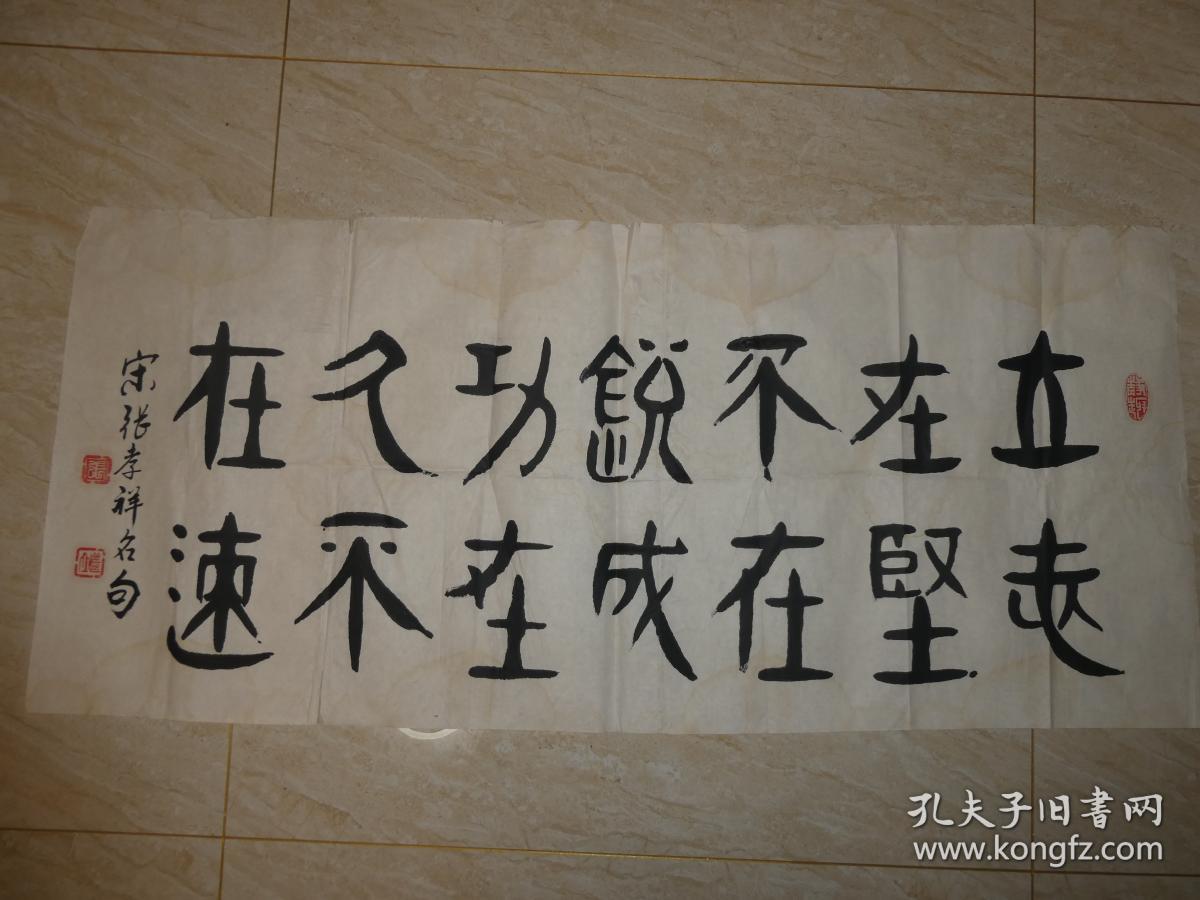 立志
在堅
不在
銳成
功在
久不
在速
宋張孝祥名句
孔夫子旧書网
www.kongfz.com